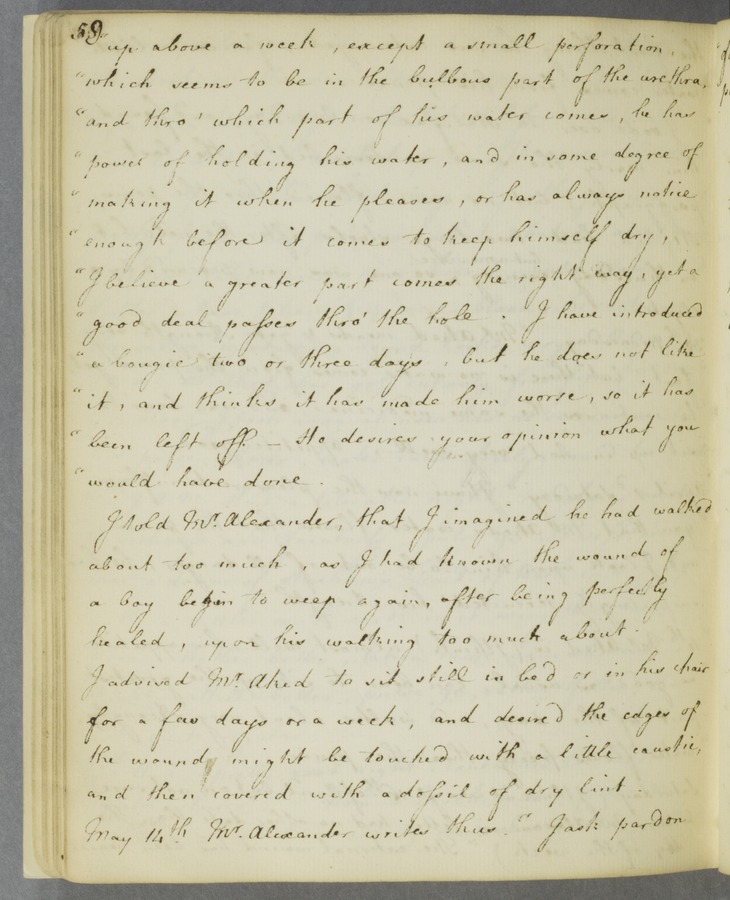 59
up above a week, except a small perforation,
"which seems to be in the bulbous part of the urethra,
"and thro' which part of his water comes, he has
"power of holding his water, and in some degree of
"making it when he pleases, or has always notice
"enough before it comes to keep himself dry,
"I believe a greater part comes the right way, yet a
"good deal passes thro' the hole. I have introduced
"a bougie two or three days, but he does not like
"it, and thinks it has made him worse, so it has
"been left off. – He desires your opinion what you
"would have done.
I told Mr. Alexander, that I imagined he had walked
about too much, as I had known the wound of
a boy begin to weep again, after being perfectly
healed, upon his walking too much about.
I advised Mr. Aked to sit still in bed or in his chair
for a few days or a week, and desired the edges of
the wound might be touched with a little caustic,
and then covered with a dossil of dry lint.
May 14th Mr. Alexander writes thus. "I ask pardon